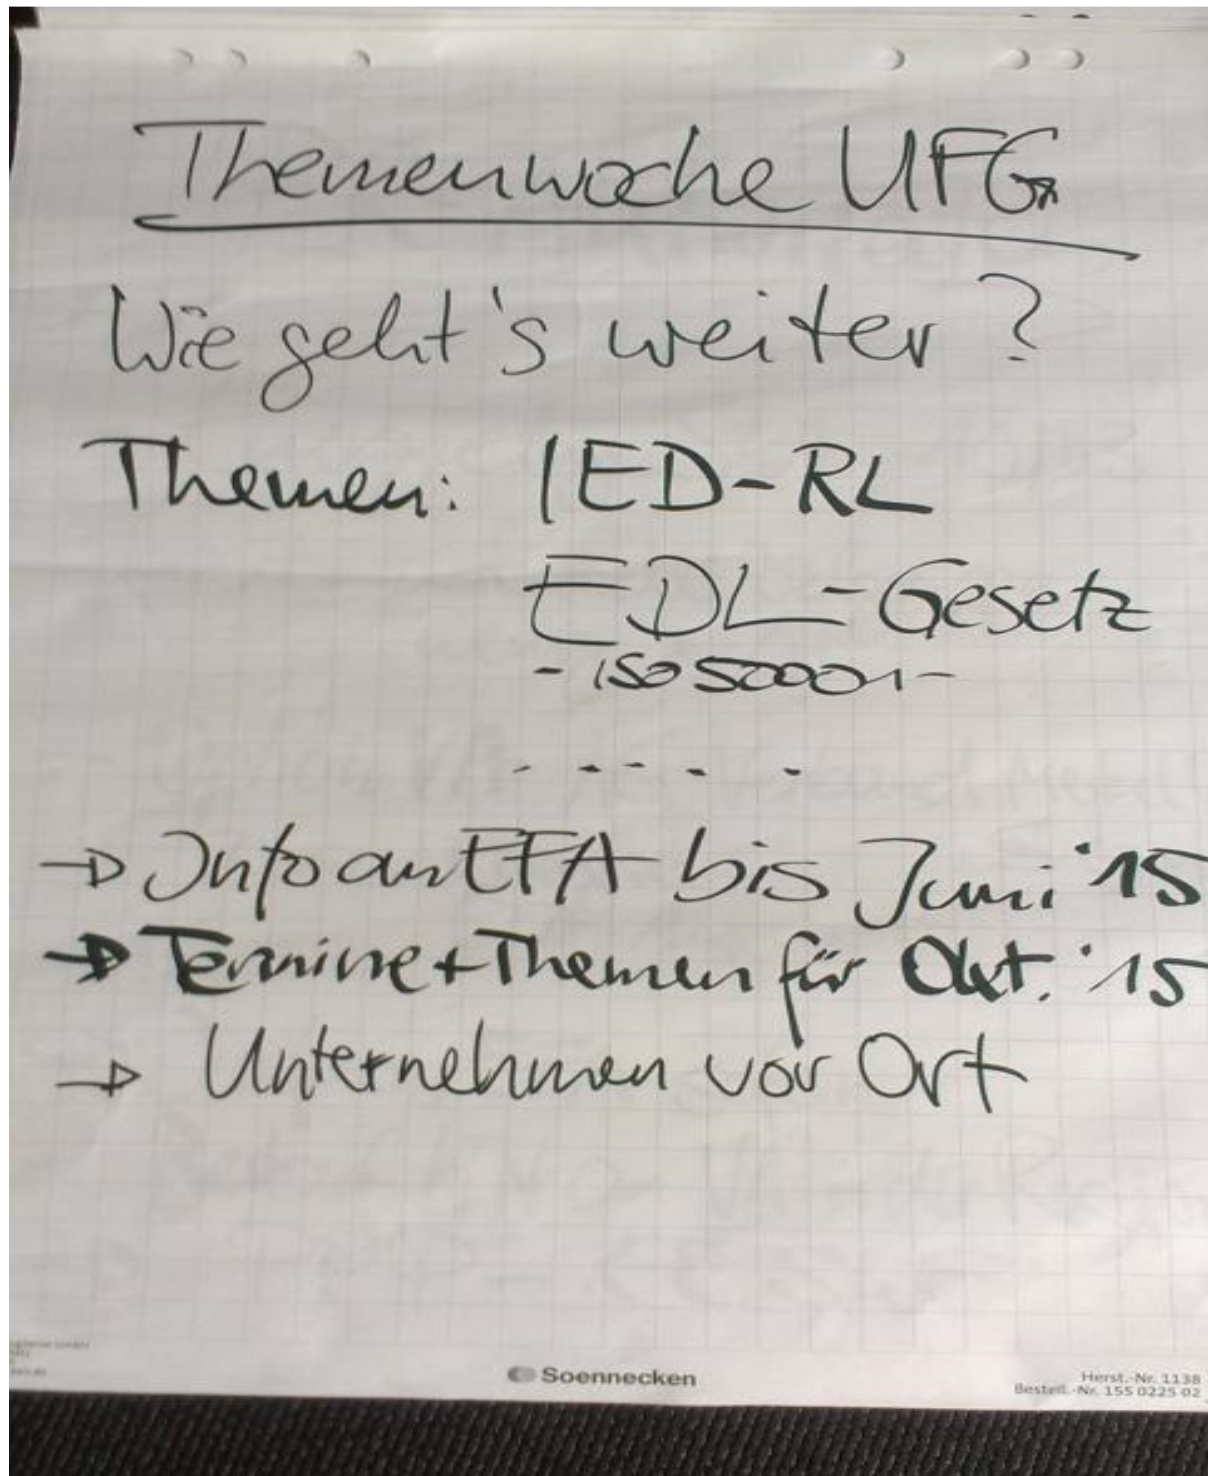 Themenwoche UFG
Wie geht's weiter?
Themen: IED-RL
EDL-Gesetz
- ISO 50001 -
- - - - -
→ Info an EFA bis Juni '15
→ Termine + Themen für Okt. '15
→ Unternehmen vor Ort
Soennecken
Herst.-Nr. 1138
Bestell.-Nr. 155 0225 02